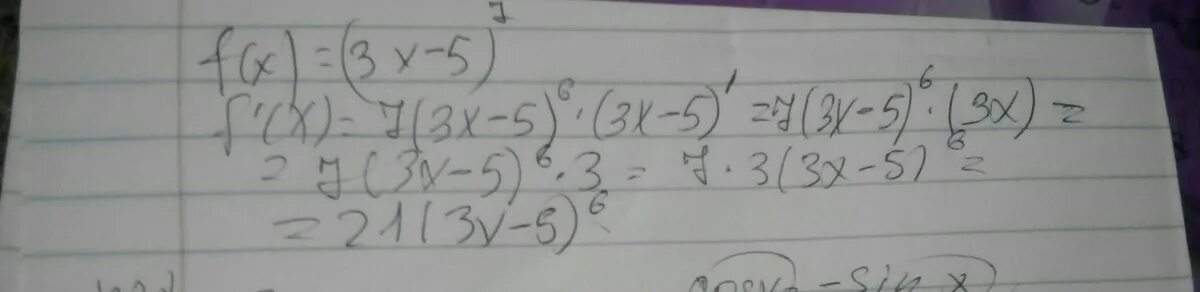 f(x) = (3x-5)^7
f'(x) = 7(3x-5)^6 · (3x-5)' = 7(3x-5)^6 · (3x) =
= 7(3x-5)^6 · 3 = 7 · 3(3x-5)^6 =
= 21(3x-5)^6
-sin x)